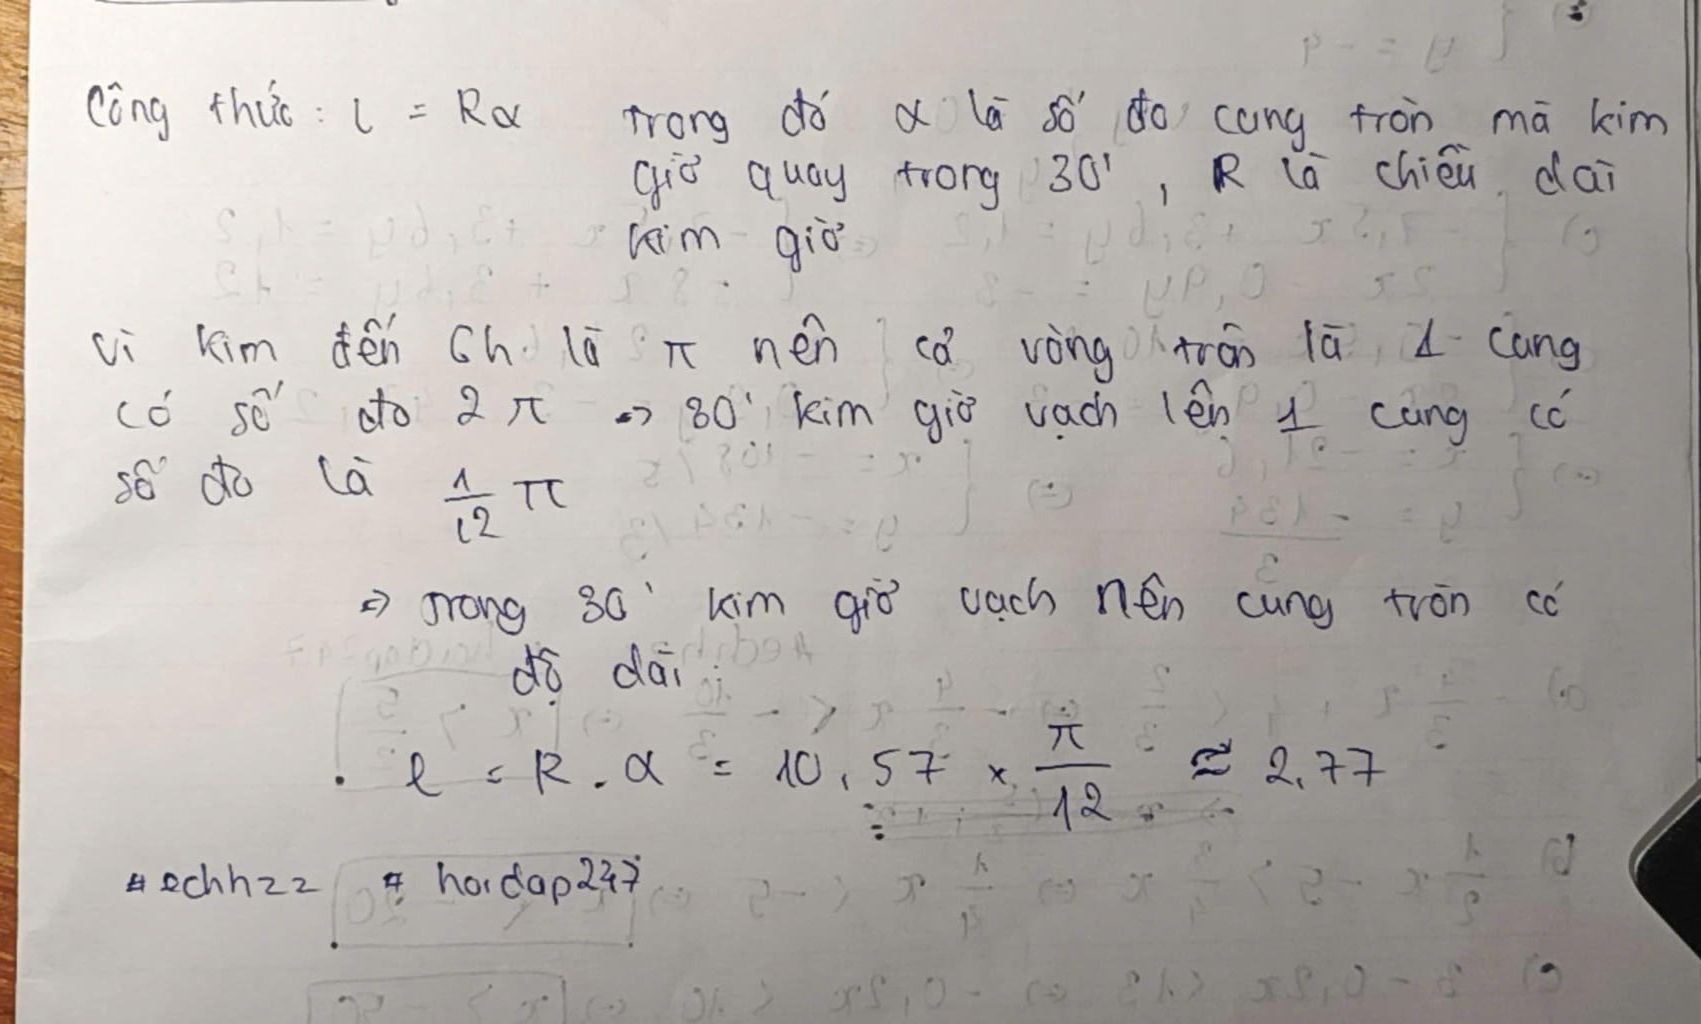 Công thức: l = Rα trong đó α là số đo cung tròn mà kim
giờ quay trong 30', R là chiều dài
kim giờ
Vì kim đến 6h là π nên cả vòng tròn là 1 cung
có số đo 2π => 30' kim giờ vạch lên 1 cung có
số đo là 1/12 π
=> Trong 30' kim giờ vạch nên cung tròn có
độ dài:
l = R.α = 10,57 x π/12 ≈ 2,77
#echhzz #hoidap247